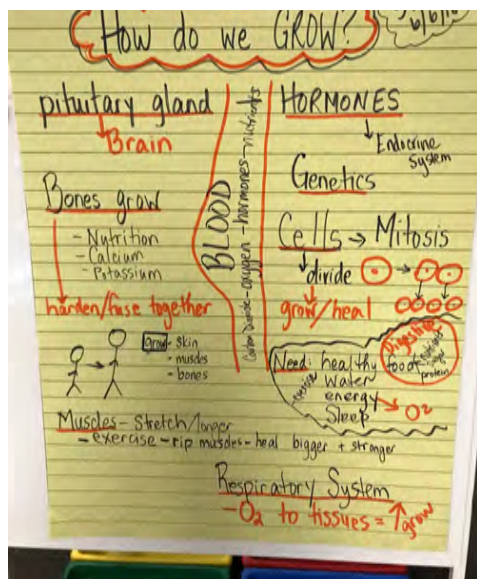 How do we GROW?
6/6/16
pituitary gland
Brain
Bones grow
- Nutrition
- Calcium
- Potassium
harden/fuse together
grow - skin
- muscles
- bones
BLOOD
Carbon Dioxide - oxygen - hormones - nutrients
HORMONES
Endocrine
System
Genetics
Cells → Mitosis
divide
grow/heal
Digestive
Need: healthy food
protein
water
exercise
energy
Sleep → O2
Muscles - Stretch/longer
- exercise - rip muscles - heal bigger + stronger
Respiratory System
- O2 to tissues = ↑ grow